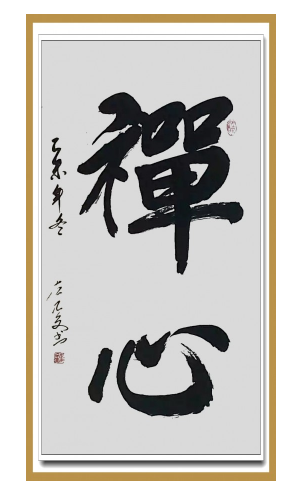 禪心
乙未年冬